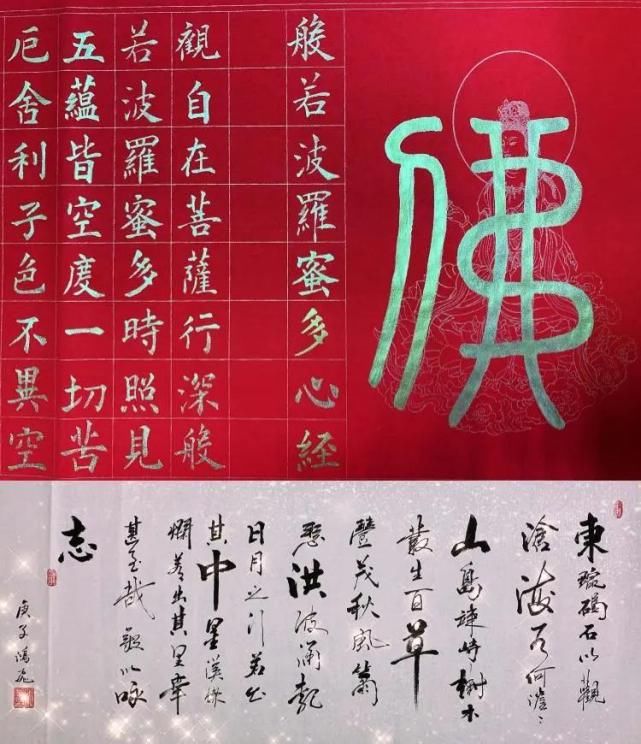 佛
般若波羅蜜多心経
觀自在菩薩行深般
若波羅蜜多時照見
五蘊皆空度一切苦
厄舍利子色不異空
東臨碣石以觀
滄海水何澹々
山島竦峙樹木
叢生百草
豐茂秋風蕭
瑟洪波涌起
日月之行若出
其中星漢燦
爛若出其里幸
甚至哉歌以咏
志
庚子